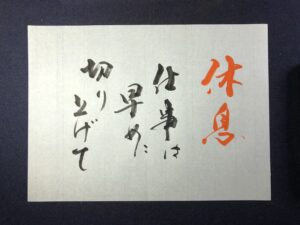 休息
仕事は
早めに
切り
上げて